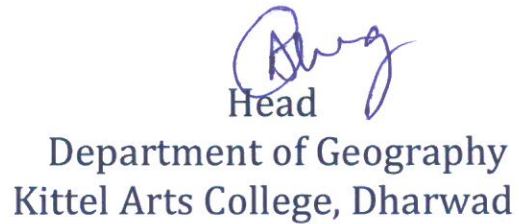 Head
Department of Geography
Kittel Arts College, Dharwad